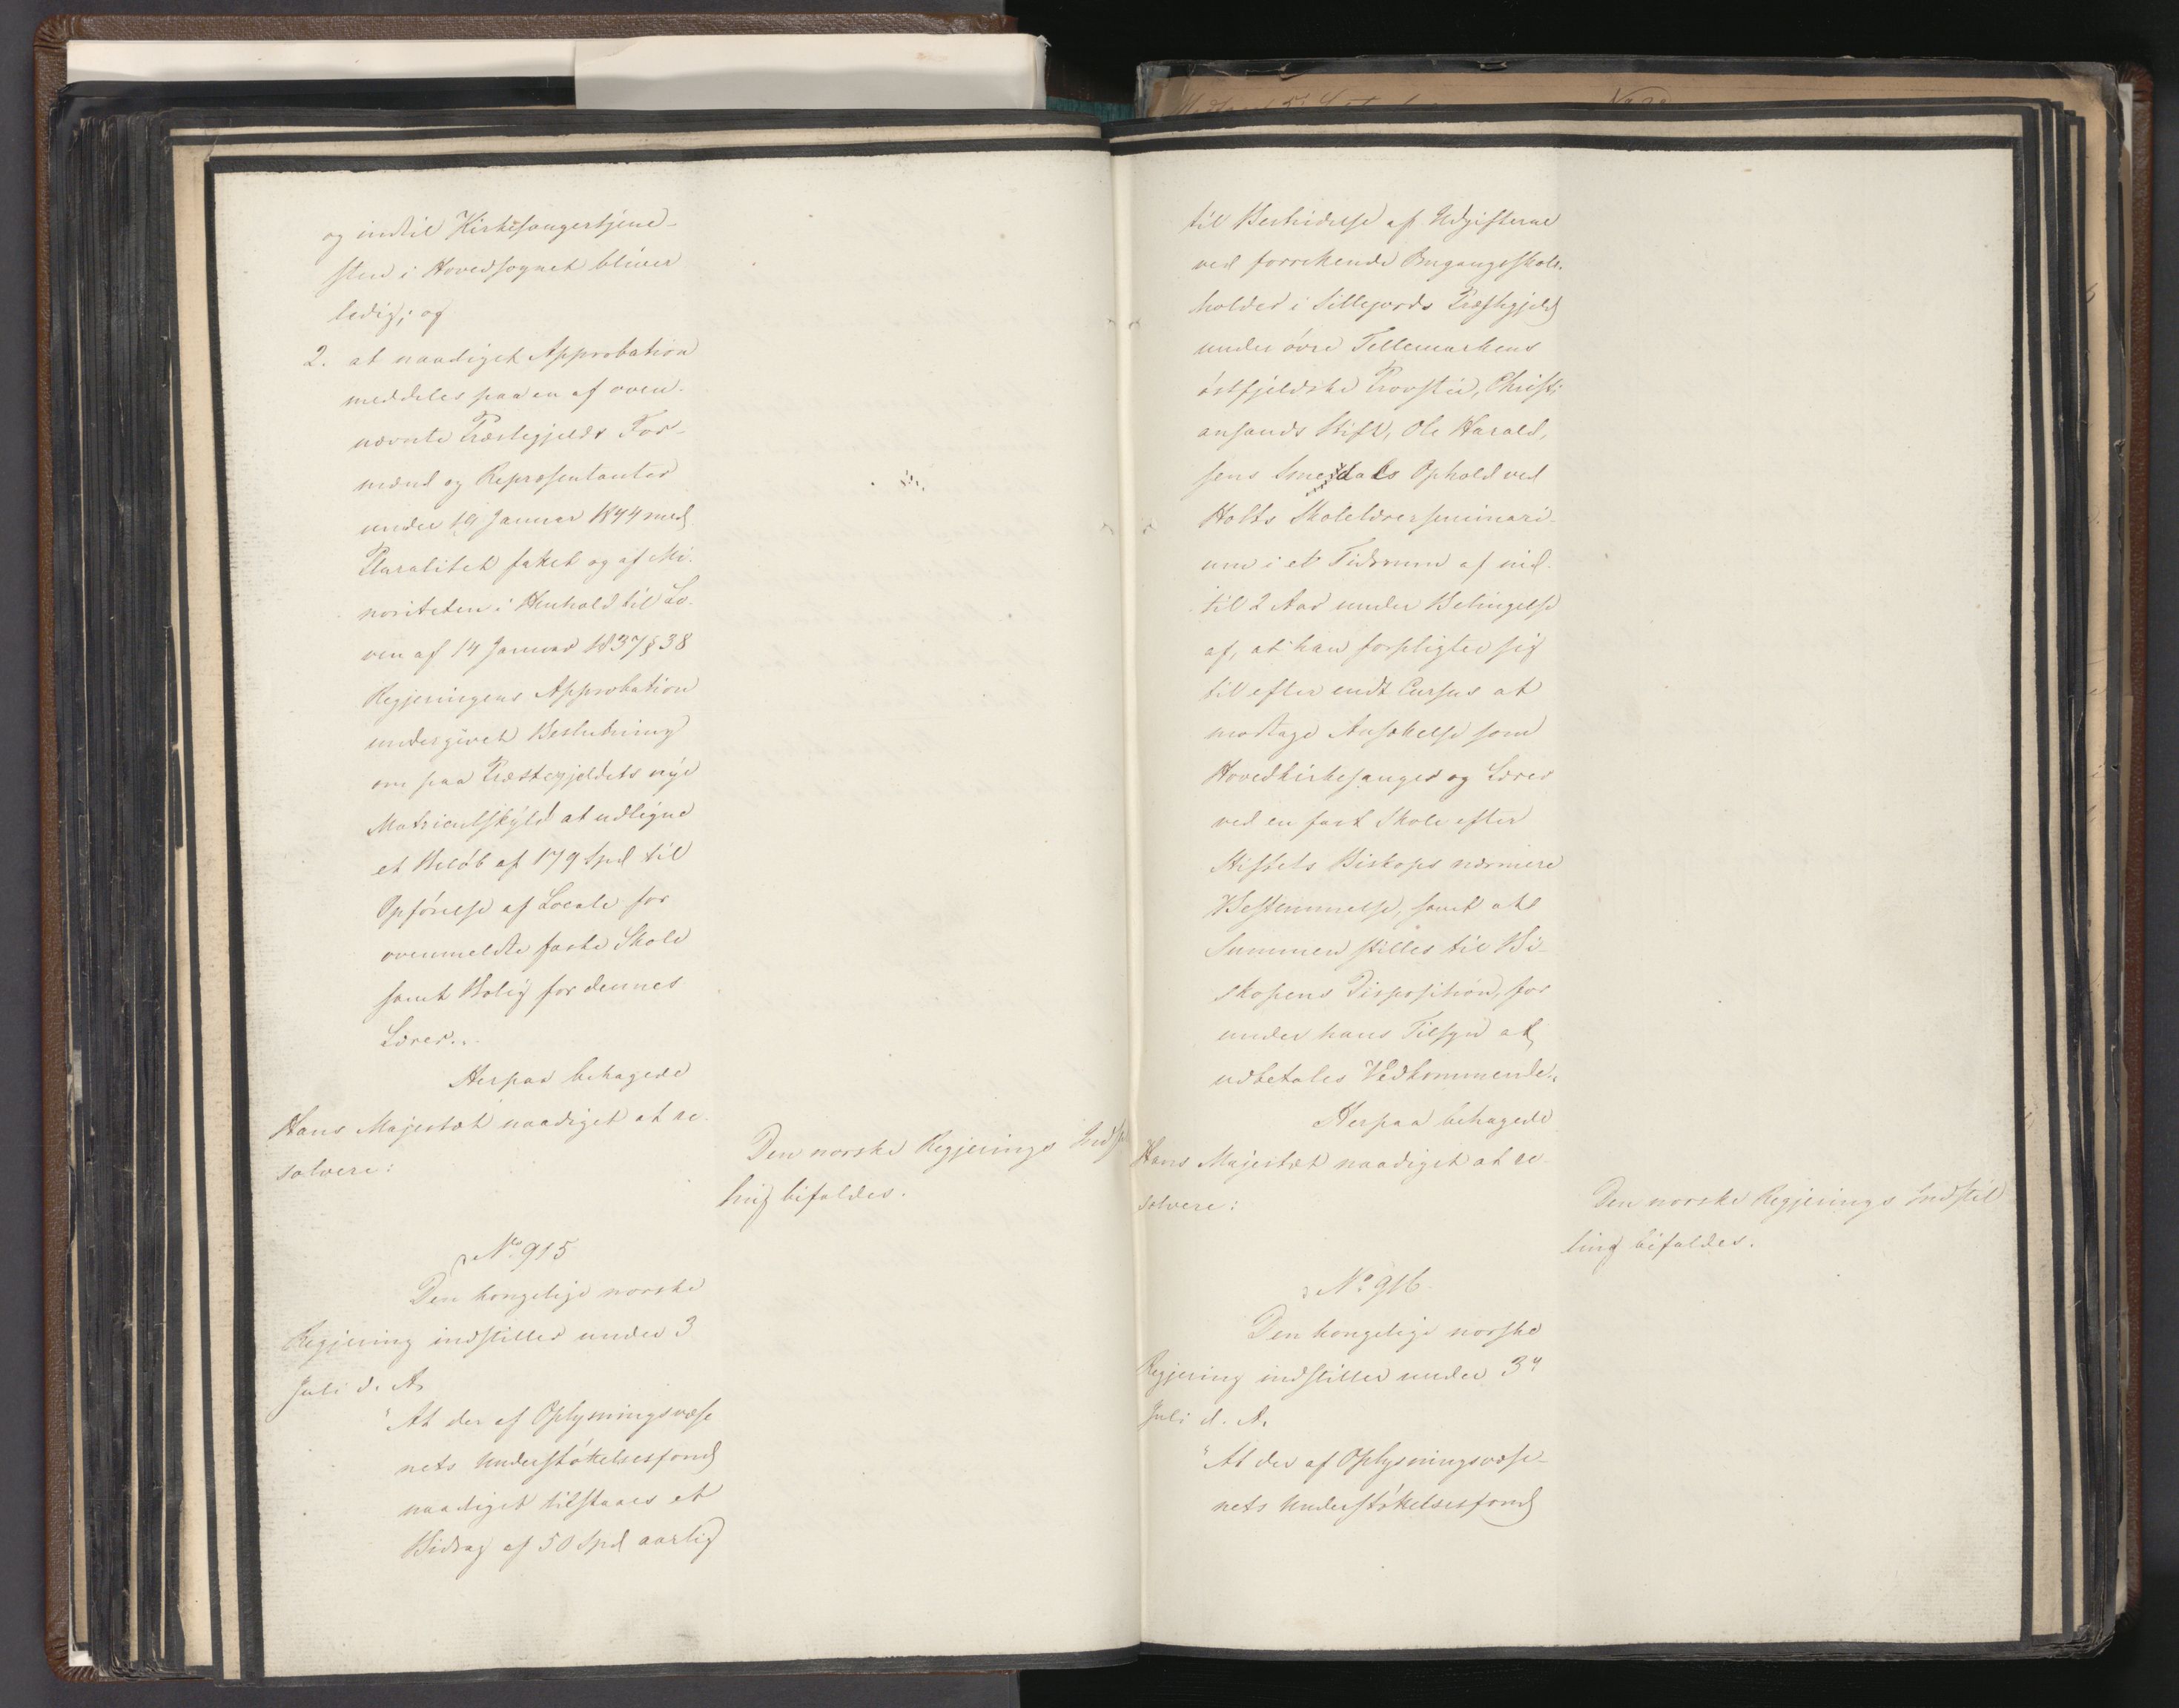 og indtil Kirkesangertjene-
sten i Hovedsognet bliver
ledig; og
2. at naadigst Approbation
meddeles paa en af oven-
nævnte Præstegjelds For-
mænd og Repræsentanter
under 19 Januar 1844 med
Pluralitet fattet og af Mi-
noriteten i Henhold til Lo-
ven af 14 Januar 1837 § 38
Regjeringens Approbation
undergivet Beslutning
om paa Præstegjeldets nye
Matriculskyld at udligne
et Beløb af 179 Spd til
Opførelse af Locale for
ovenmeldte faste Skole
samt Bolig for dennes
Lærer."
Herpaa behagede
Hans Majestæt naadigst at re-
solvere:
Den norske Regjerings Indstil
ling bifaldes.
No 915
Den kongelige norske
Regjering indstiller under 3
Juli d. A.
"At der af Oplysningsvæse
nets Understøttelsesfond
naadigst tilstaaes et
Bidrag af 50 Spd aarlig
til Bestridelse af Udgifterne
ved forrekende Omgangsskole-
holder i Sillejords Præstegjeld
under øvre Tellemarkens
østfjeldske Provstie, Christi
ansands Stift, Ole Harald-
sens Smedals Ophold ved
Holts Skolelærerseminari-
um i et Tidsrum af ind-
til 2 Aar under Betingelse
af, at han forpligter sig
til efter endt Cursus at
modtage Ansættelse som
Hovedkirkesanger og Lærer
ved en fast Skole efter
Stiftets Biskops nærmere
Bestemmelse, samt at
Summen stilles til Bi-
skopens Disposition, for
under hans Tilsyn at
udbetales Vedkommende."
Herpaa behagede
Hans Majestæt naadigst at re-
solvere:
Den norske Regjerings Indstil
ling bifaldes.
No 916
Den kongelige norske
Regjering indstiller under 3d
Juli d. A.
"At der af Oplysningsvæse-
nets Understøttelsesfond